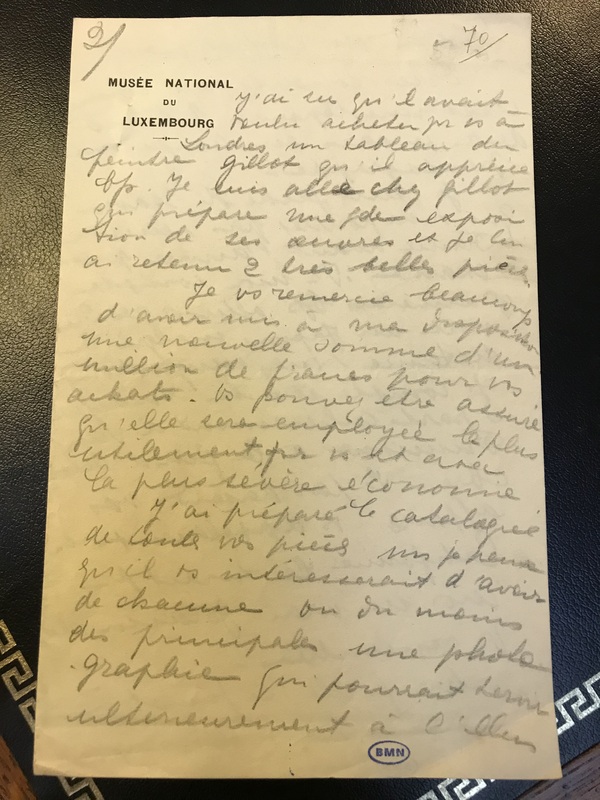 2/
70/
MUSÉE NATIONAL
DU
LUXEMBOURG
J'ai su qu'il avait
voulu acheter pr vs à
Londres un tableau du
peintre Gillot qu'il apprécie
bp. Je suis allé chez Gillot
qui prépare une gde exposi
tion de ses œuvres et je lui
ai retenu 2 très belles pièces.
Je vs remercie beaucoup
d'avoir mis à ma disposition
une nouvelle somme d'un
million de francs pour vos
achats. Vs pouvez être assuré
qu'elle sera employée le plus
utilement pr vs et avec
la plus sévère économie
J'ai préparé le catalogue
de toutes vos pièces ms je pense
qu'il vs intéresserait d'avoir
de chacune ou du moins
des principales une photo
graphie qui pourrait servir
ultérieurement à l'illus
BMN